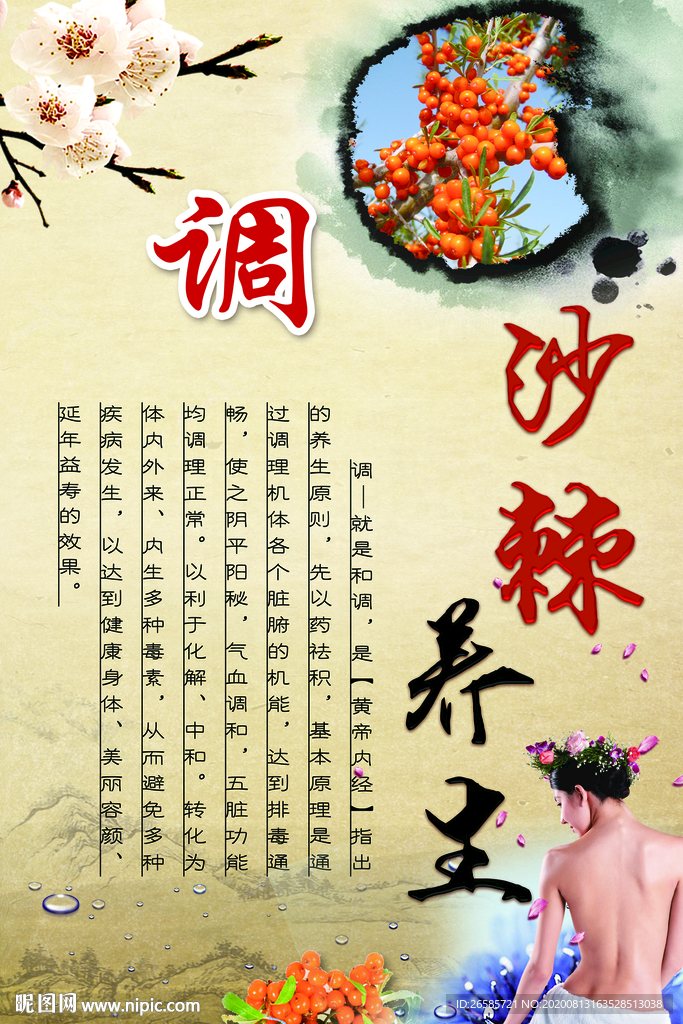 调
沙棘
养生
调—就是和调，是【黄帝内经】指出
的养生原则，先以药祛积，基本原理是通
过调理机体各个脏腑的机能，达到排毒通
畅，使之阴平阳秘，气血调和，五脏功能
均调理正常。以利于化解、中和。转化为
体内外来、内生多种毒素，从而避免多种
疾病发生，以达到健康身体、美丽容颜、
延年益寿的效果。
昵图网 www.nipic.com
ID:26585721 NO:20200813163528513038